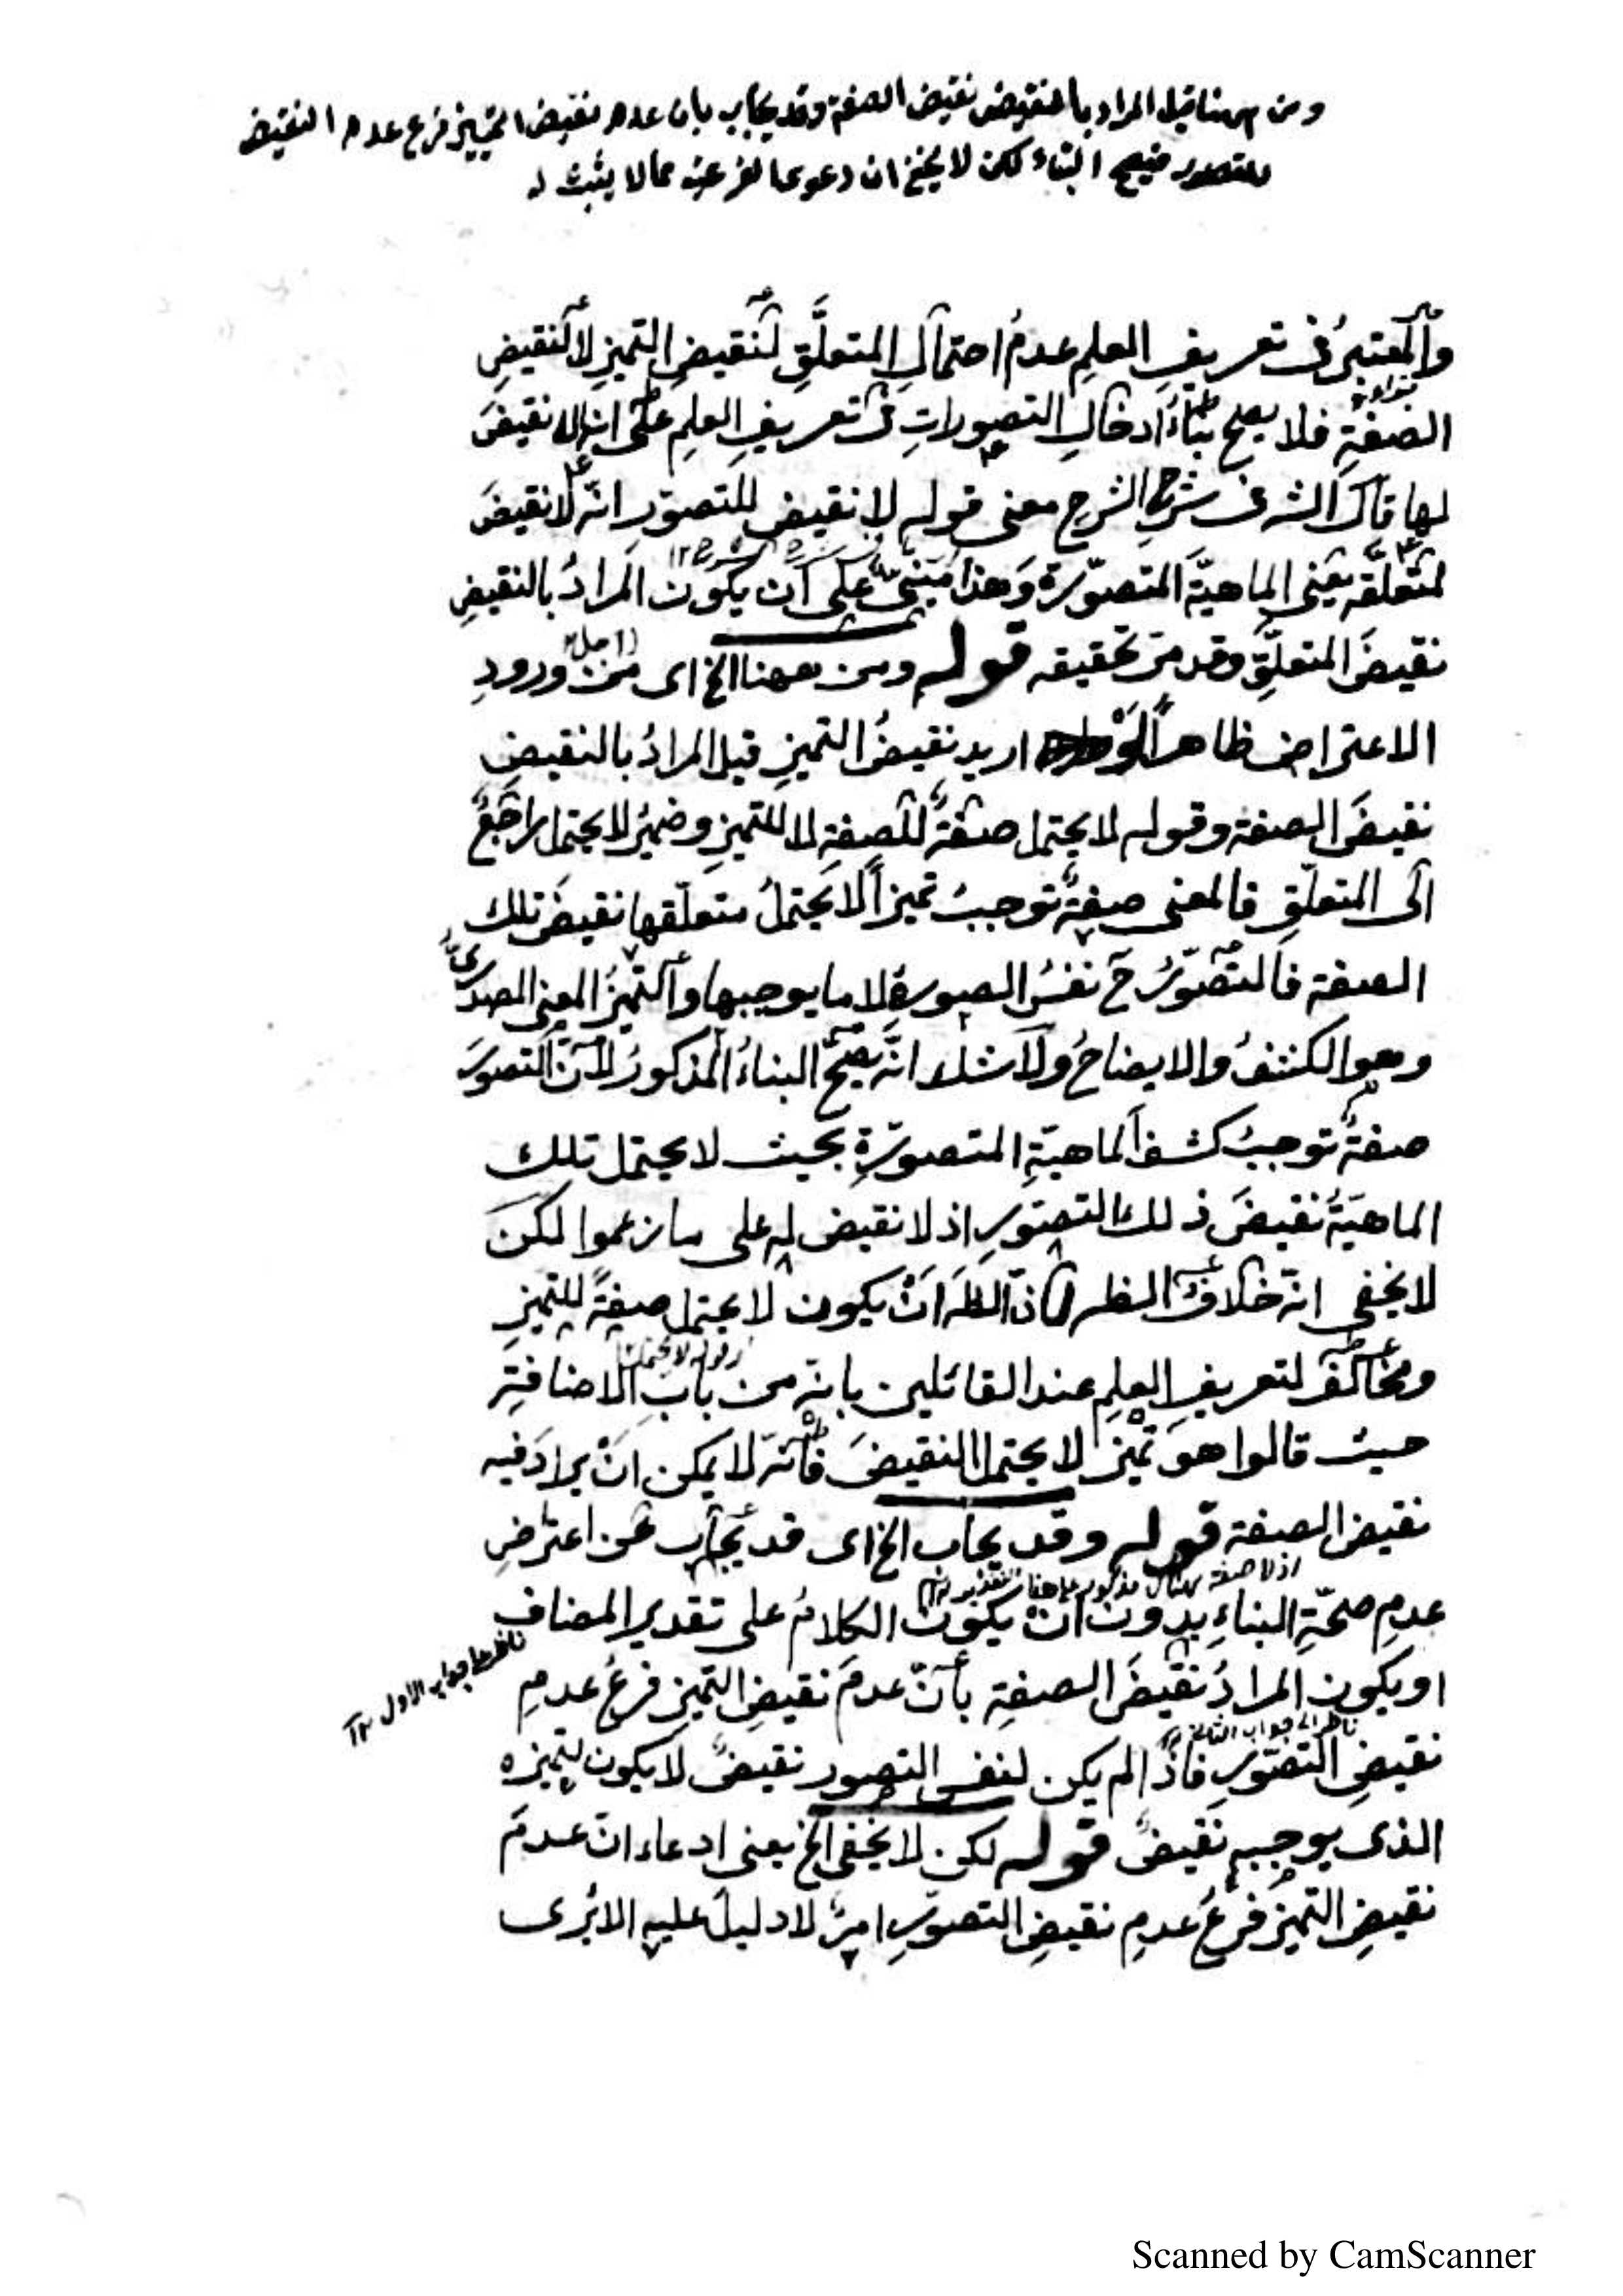 ومن ههنا قيل المراد بالنقيض نقيض الصفة وقد يجاب بان عدم نقيض التمييز فرع عدم النقيض
للتصور فيصح البناء لكن لا يخفى ان دعوى الفرعية مما لا يثبت له
والمعتبرُ فى تعريفِ العلمِ عدمُ احتمالِ المتعلَّقِ لنقيضِ التميزِ لا لنقيضِ
الصفةِ فلا يصح بناءُ ادخالِ التصوراتِ فى تعريفِ العلمِ على انها لا نقيضَ
لها قال الش فى شرحِ الشرحِ معنى قوله لا نقيض للتصوّرِ انه لا نقيضَ
لمتعلَّقه يعنى الماهيّة المتصوّرة وهذا مبنىٌّ على ان يكون المرادُ بالنقيضِ
نقيضَ المتعلِّقِ وقد مرّ تحقيقه قوله ومن ههنا الخ اى من ورودِ
الاعتراض ظاهراً لوْ اريد نقيضُ التميزِ قيل المرادُ بالنقيضِ
نقيضَ الصفة وقوله لا يحتمل صفةٌ للصفةِ لا للتميزِ وضميرُ لا يحتمل راجعٌ
الى المتعلّقِ فالمعنى صفةٌ توجبُ تميزاً لا يحتملُ متعلّقها نقيضَ تلك
الصفة فالتصوّرُ ح نفسُ الصورةِ لا ما يوجبها والتميزُ المعنى المصدرىُّ
وهو الكشفُ والايضاحُ ولا شك انّه يصحّ البناءُ المذكورُ لانّ التصورَ
صفةٌ توجبُ كشفَ الماهيّةِ المتصوّرةِ بحيث لا يحتمل تلك
الماهيّةُ نقيضَ ذلك التصوّرِ اذ لا نقيض له على ما زعموا لكن
لا يخفى انّه خلافُ الظهر اذ الظه انْ يكون لا يحتمل صفةً للتميزِ
ومخالفٌ لتعريفِ العلمِ عند القائلين بانه من بابِ الاضافةِ
حيث قالوا هو تميز لا يحتمل النقيضَ فانّه لا يمكن انْ يرادَ فيه
نقيض الصفة قوله وقد يجاب الخ اى قد يجاب عن اعتراضِ
عدمِ صحّةِ البناءِ بدون ان يكون الكلامُ على تقدير المضاف
ناظر الى جواب الاول ١٢
او يكون المرادُ نقيضَ الصفةِ بأنّ عدمَ نقيضِ التميزِ فرعُ عدمِ
ناظر الى جواب الثانى
نقيضِ التصوّرِ فاذا لم يكن لنفس التصور نقيضٌ لا يكون لتميزه
الذى يوجبه نقيضٌ قوله لكن لا يخفى الخ يعنى ادعاء انّ عدمَ
نقيضِ التميزِ فرعُ عدمِ نقيضِ التصوّرِ امرٌ لا دليلَ عليه الا يُرى
Scanned by CamScanner